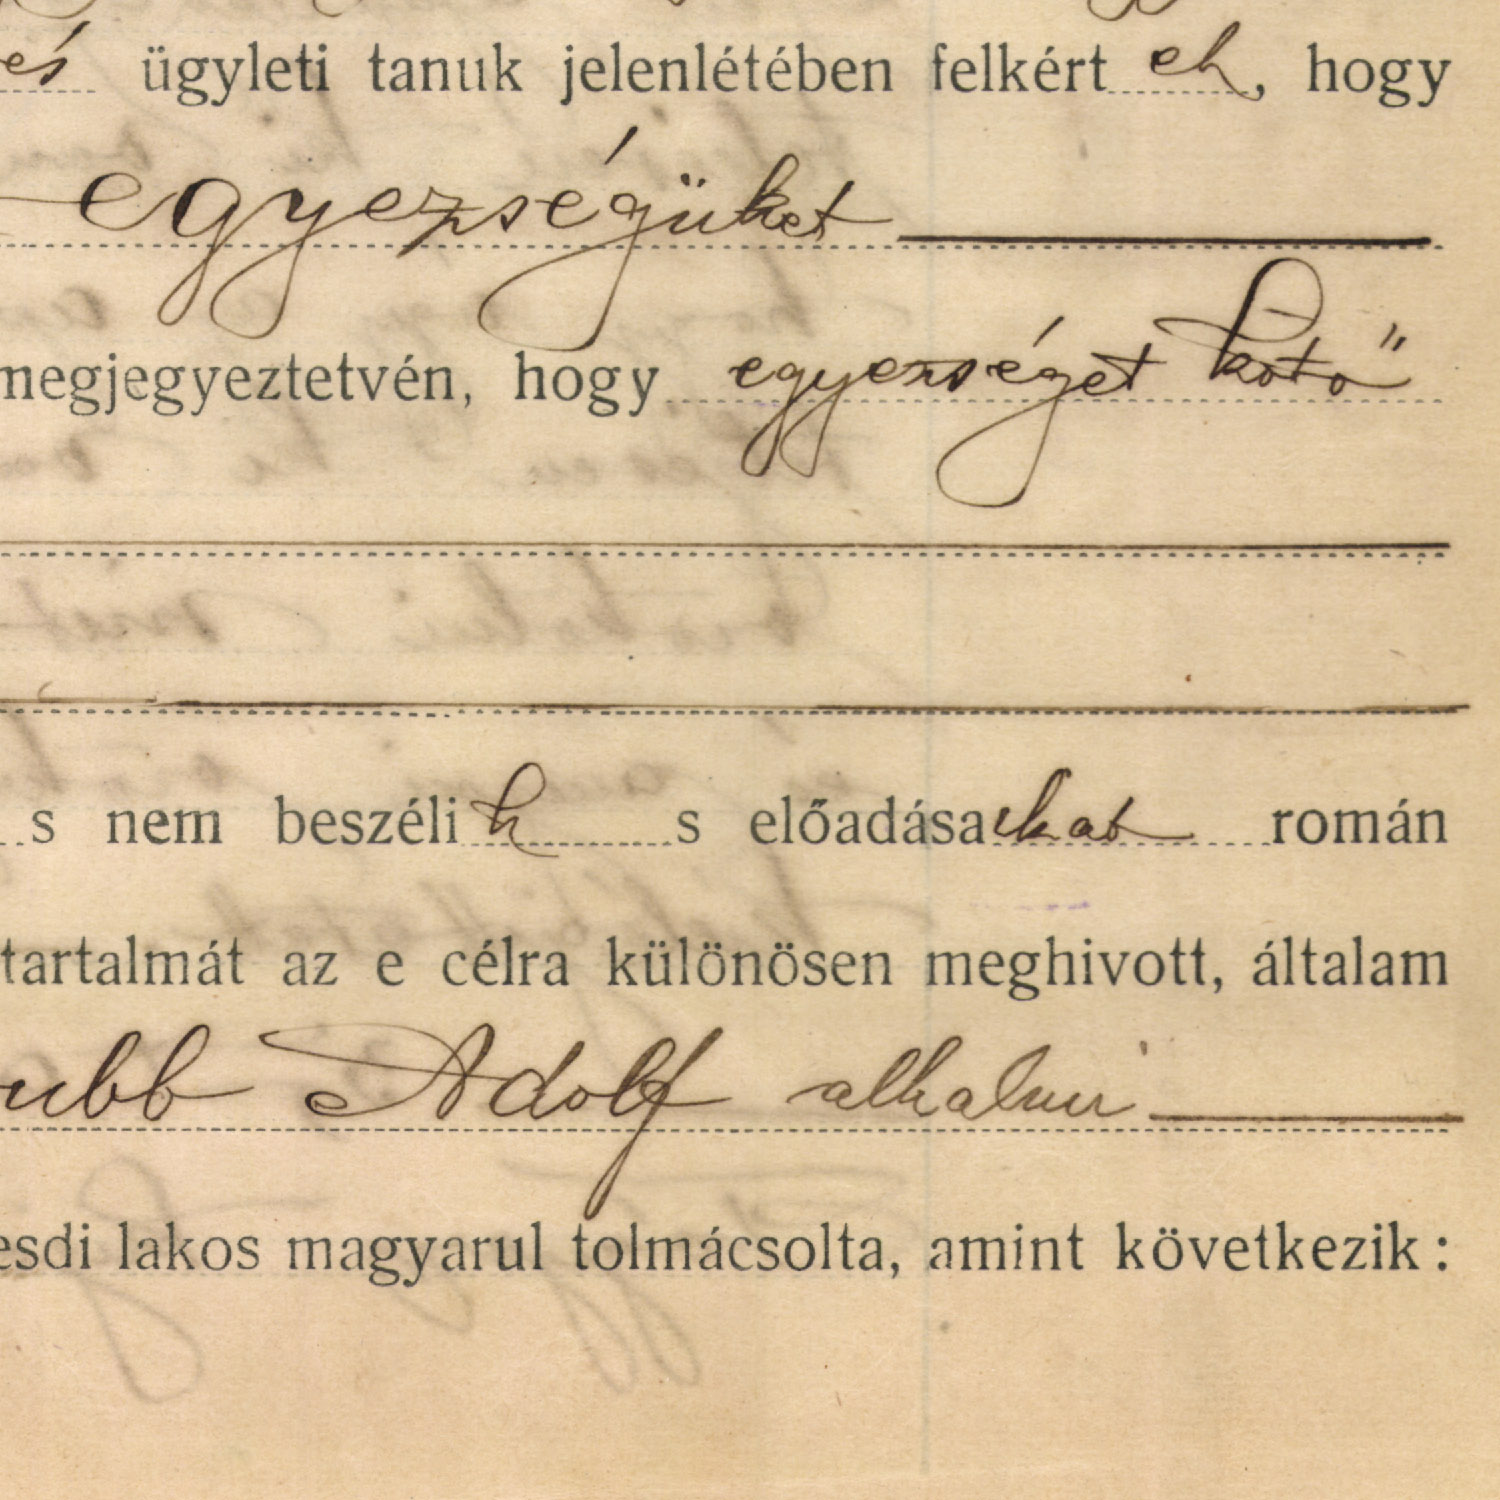 és ügyleti tanuk jelenlétében felkért ek, hogy
egyezségüket
megjegyeztetvén, hogy egyezséget kötő
s nem beszélik s előadásaikat román
tartalmát az e célra különösen meghivott, általam
ubb Adolf alkalmi
esdi lakos magyarul tolmácsolta, amint következik: